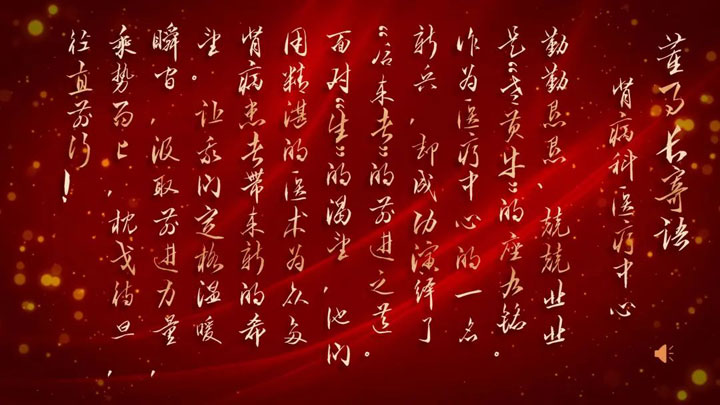 董事长寄语
肾病科医疗中心
勤勤恳恳、兢兢业业
是“老黄牛”的座右铭。
作为医疗中心的一名
新兵，却成功演绎了
“后来者”的前进之道。
面对“生”的渴望，他们
用精湛的医术为众多
肾病患者带来新的希
望。让我们定格温暖
瞬间，汲取前进力量，
乘势而上，枕戈待旦，
径直前行！